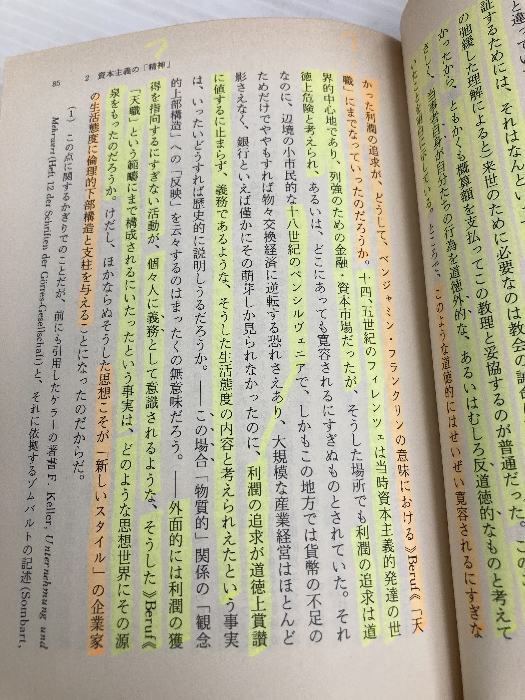 と違ってい
証するためには、それはなんと
の弛緩した理解によると）来世のために必要なのは教会の
かったから、ともかくも概算額を支払ってこの教理と妥協するのが普通だった。
さして、当事者自身が自分たちの行為を道徳外的な、あるいはむしろ反道徳的なものと考えて
いたことを
ところで、このような道徳的にはせいぜい寛容されるにすぎな
かった利潤の追求が、どうして、ベンジャミン・フランクリンの意味における》Beruf《「天
職」にまでなっていったのだろうか。十四、五世紀のフィレンツェは当時資本主義的発達の世
界的中心地であり、列強のための金融・資本市場だったが、そうした場所でも利潤の追求は道
徳上危険と考えられ、あるいは、どこにあっても寛容されるにすぎぬものとされていた。それ
なのに、辺境の小市民的な十八世紀のペンシルヴェニアで、しかもこの地方では貨幣の不足の
ためだけでややもすれば物々交換経済に逆転する恐れさえあり、大規模な産業経営はほとんど
影さえなく、銀行といえば僅かにその萌芽しか見られなかったのに、利潤の追求が道徳上賞讃
に値するに止まらず、義務であるような、そうした生活態度の内容と考えられえたという事実
は、いったいどうすれば歴史的に説明しうるだろうか。――この場合「物質的」関係の「観念
的上部構造」への「反映」を云々するのはまったくの無意味だろう。――外面的には利潤の獲
得を指向するにすぎない活動が、個々人に義務として意識されるような、そうした》Beruf《
「天職」という範疇にまで構成されるにいたったという事実は、どのような思想世界にその源
泉をもったのだろうか。けだし、ほかならぬそうした思想こそが「新しいスタイル」の企業家
の生活態度に倫理的下部構造と支柱を与えることになったのだからだ。
（1） この点に関するかぎりでのことだが、前にも引用したケラーの著書 F. Keller, Unternehmung und
Mehrwert (Heft 12 der Schriften der Görres-Gesellschaft) と、それに依拠するゾムバルトの記述 (Sombart,
85 2 資本主義の「精神」